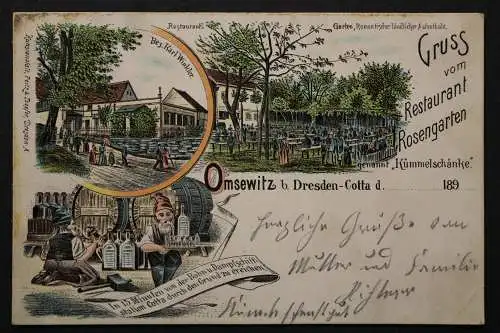 Restaurant
Garten, Romantischer ländlicher Aufenthalt.
Bes. Karl Winkler.
Gruss
vom
Restaurant
Rosengarten
genannt „Kümmelschänke."
Omsewitz b. Dresden-Cotta d. 189
In 15 Minuten von der Bahn u. Dampfschiff-
station Cotta durch den Grund zu erreichen.
Herzliche Grüße von
Mutter und Familie
Richter